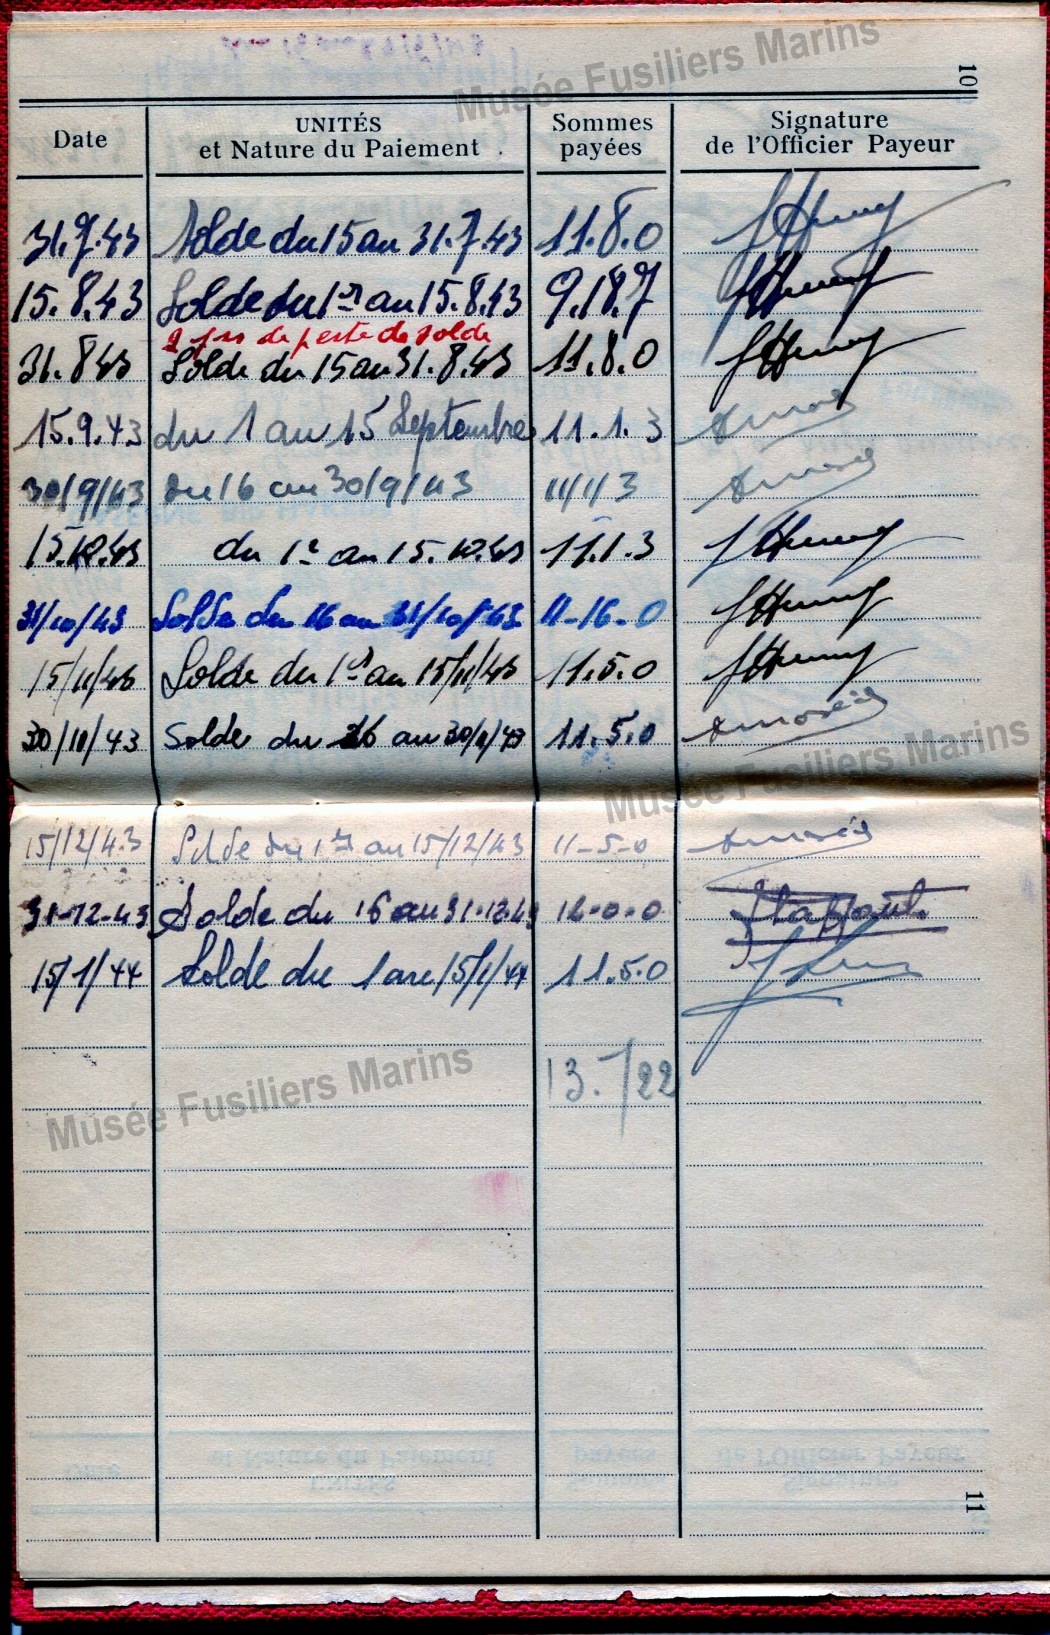 Musée Fusiliers Marins
10
Date UNITÉS et Nature du Paiement Sommes payées Signature de l'Officier Payeur
31.7.43 Solde du 15 au 31.7.43 11.8.0
15.8.43 Solde du 1er au 15.8.43 9.18.7
2 jrs de perte de solde
31.8.43 Solde du 15 au 31.8.43 11.8.0
15.9.43 du 1 au 15 Septembre 11.1.3
30/9/43 du 16 au 30/9/43 11/1/3
15.10.43 du 1er au 15.10.43 11.1.3
31/10/43 Solde du 16 au 31/10/43 11-16-0
15/11/43 Solde du 1er au 15/11/43 11.5.0
30/11/43 Solde du 16 au 30/11/43 11.5.0
Musée Fusiliers Marins
15/12/43 Solde du 1er au 15/12/43 11-5-0
31-12-43 Solde du 16 au 31.12.43 12-0-0
15/1/44 Solde du 1 au 15/1/44 11.5.0
13./22
Musée Fusiliers Marins
11